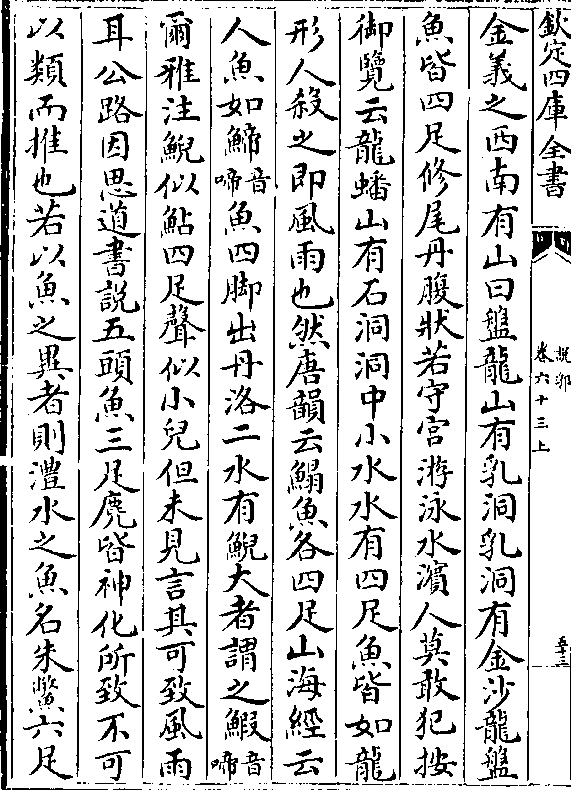 欽定四庫全書
說郛
卷六十三上
五十三
金義之西南有山曰盤龍山有乳洞乳洞有金沙龍盤
魚皆四足修尾丹腹狀若守宮游泳水濱人莫敢犯按
御覽云龍蟠山有石洞洞中小水水有四足魚皆如龍
形人殺之即風雨也然唐韻云鰨魚各四足山海經云
人魚如鯑音啼魚四脚出丹洛二水有鯢大者謂之鰕音啼
爾雅注鯢似鮎四足聲似小兒但未見言其可致風雨
耳公路因思道書説五頭魚三足麂皆神化所致不可
以類而推也若以魚之異者則澧水之魚名朱鱉六足